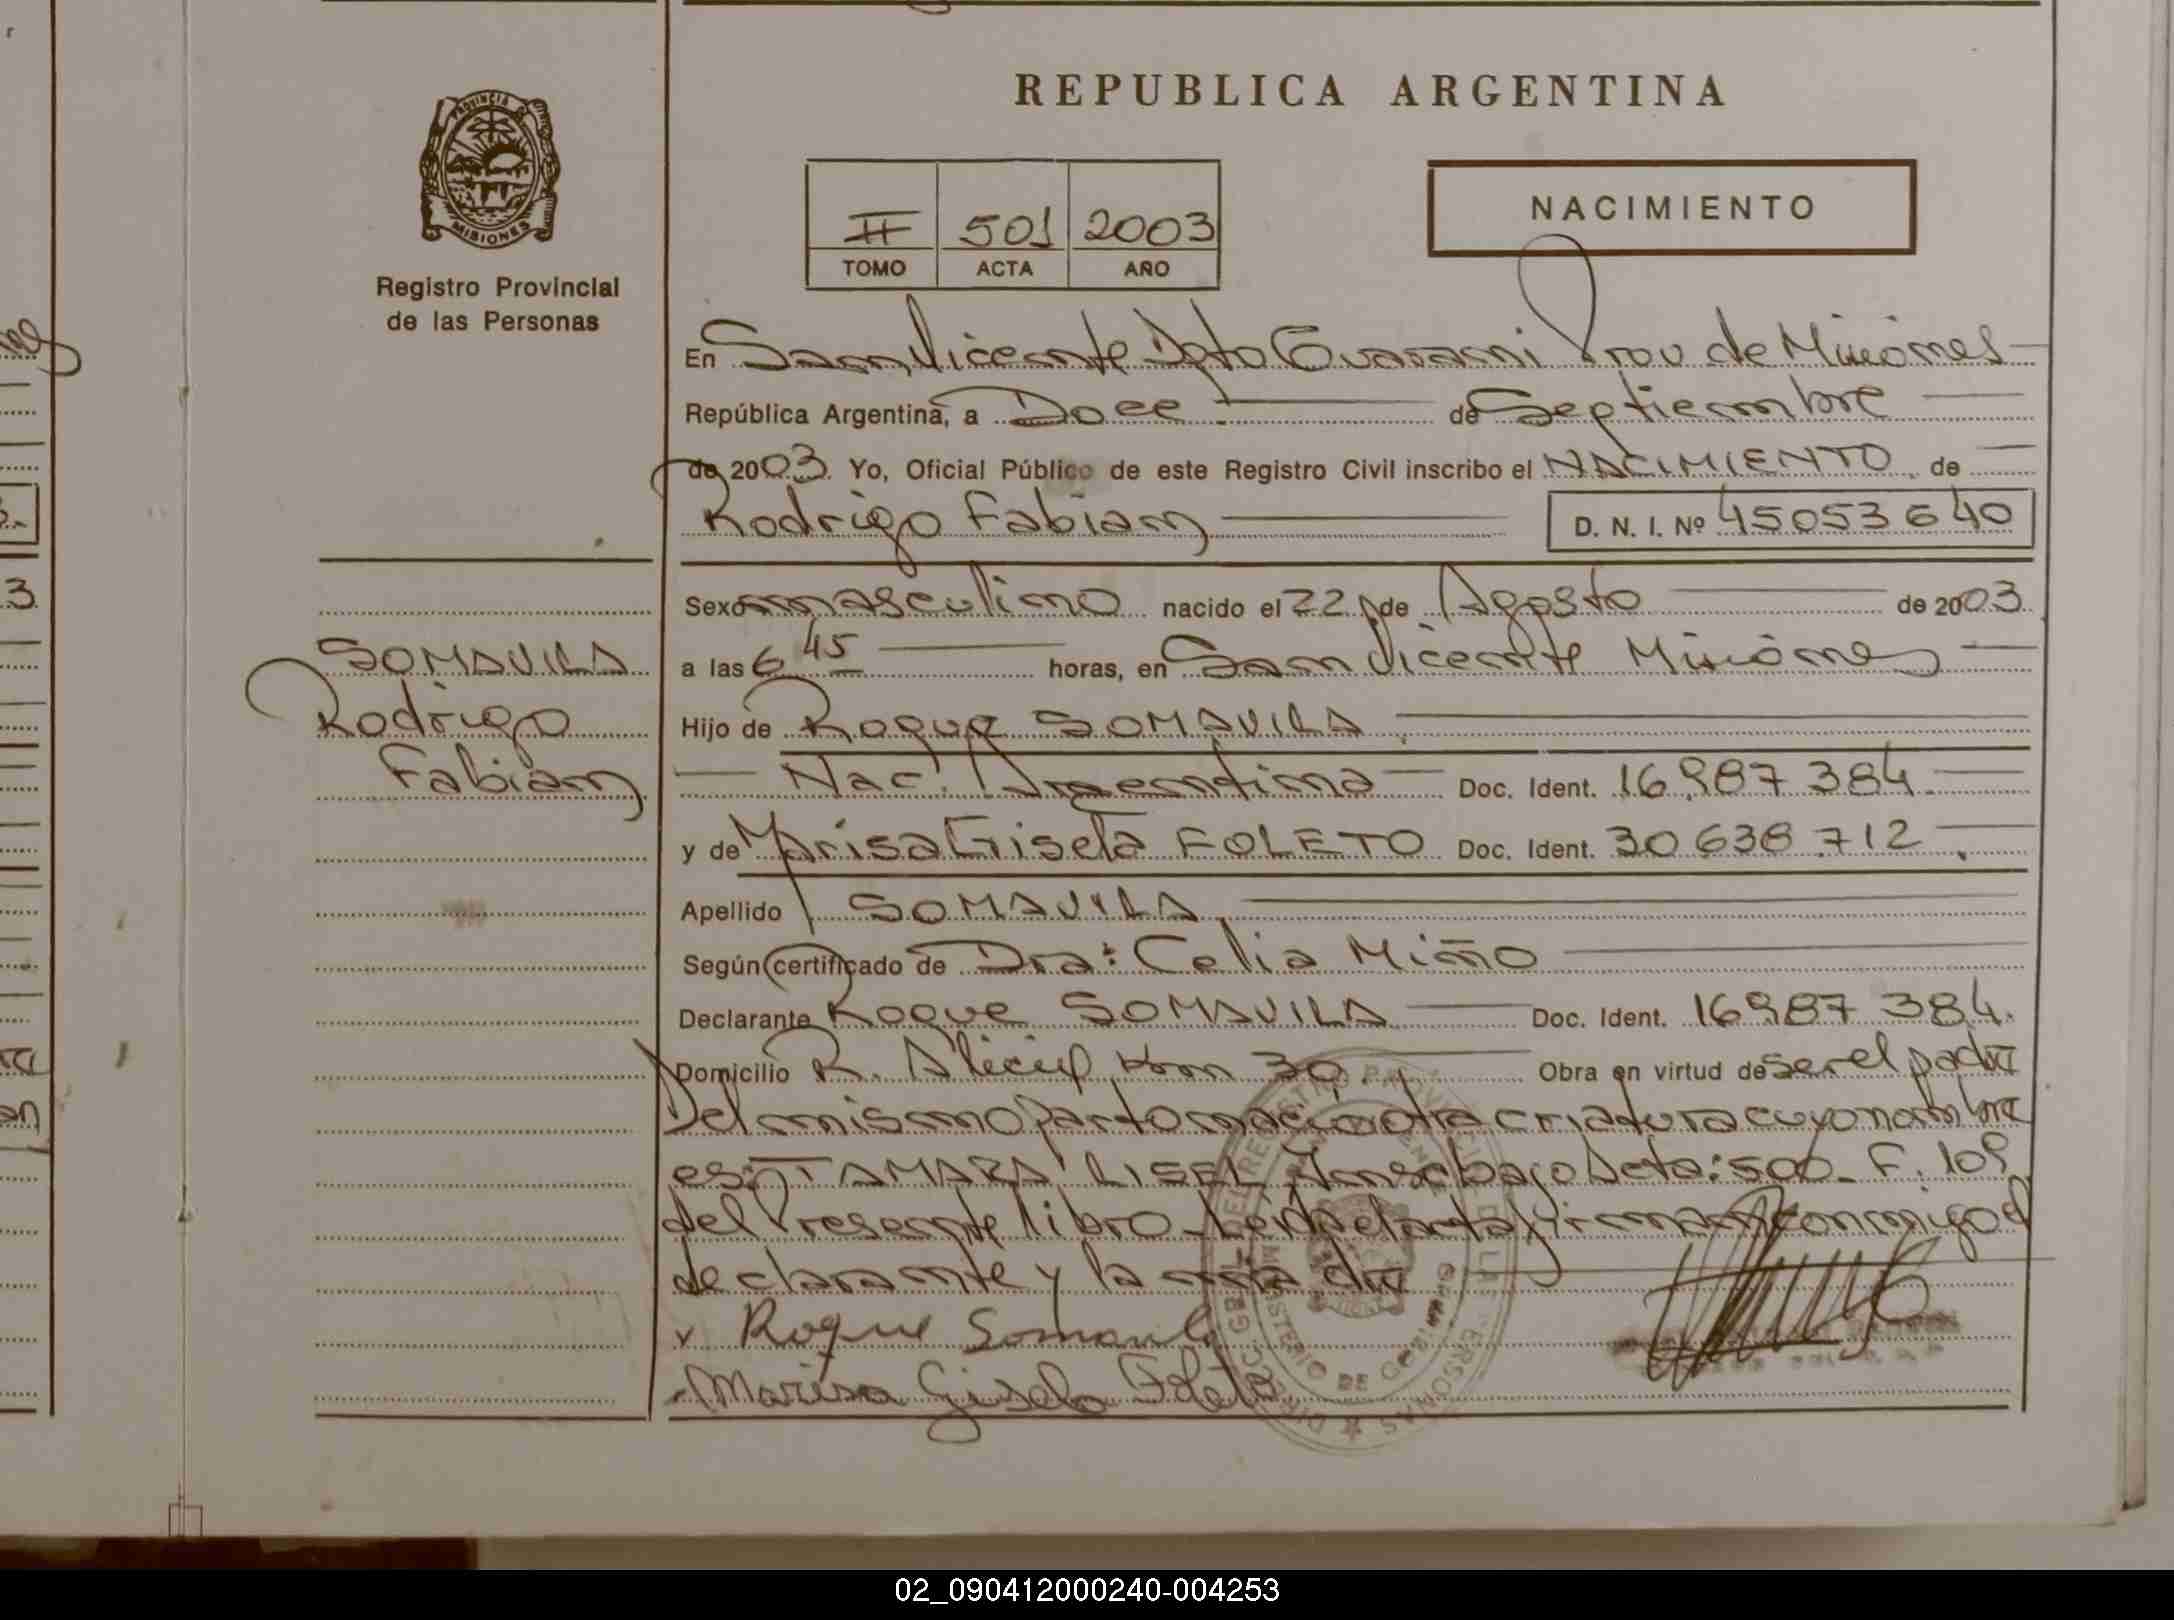 REPUBLICA ARGENTINA
PROVINCIA DE
MISIONES
Registro Provincial
de las Personas
II 501 2003
TOMO ACTA AÑO
NACIMIENTO
En San Vicente Dpto Guarani Prov de Misiones
República Argentina, a Doce de Septiembre
de 2003. Yo, Oficial Público de este Registro Civil inscribo el NACIMIENTO de
Rodrigo Fabian D. N. I. Nº 45053640
Sexo masculino nacido el 22 de Agosto de 2003.
a las 6 45 horas, en San Vicente Misiones
Hijo de Roque SOMAVILA
Nac. Argentina Doc. Ident. 16.987 384.
y de Marisa Gisela FOLETO Doc. Ident. 30 638 712.
Apellido SOMAVILA
Según certificado de Dra: Celia Miño
Declarante Roque SOMAVILA Doc. Ident. 16987 384.
Domicilio R. Km 30. Obra en virtud de ser el padre
Del mismo parto nació otra criatura cuyo nombre
es: TAMARA LISEL bajo Acta: 500_ F. 109
del Presente libro_Leida el acta firman conmigo el
declarante y la madre
Roque Somavila
Marisa Gisela Foleto
SOMAVILA
Rodrigo
Fabian
02_090412000240-004253